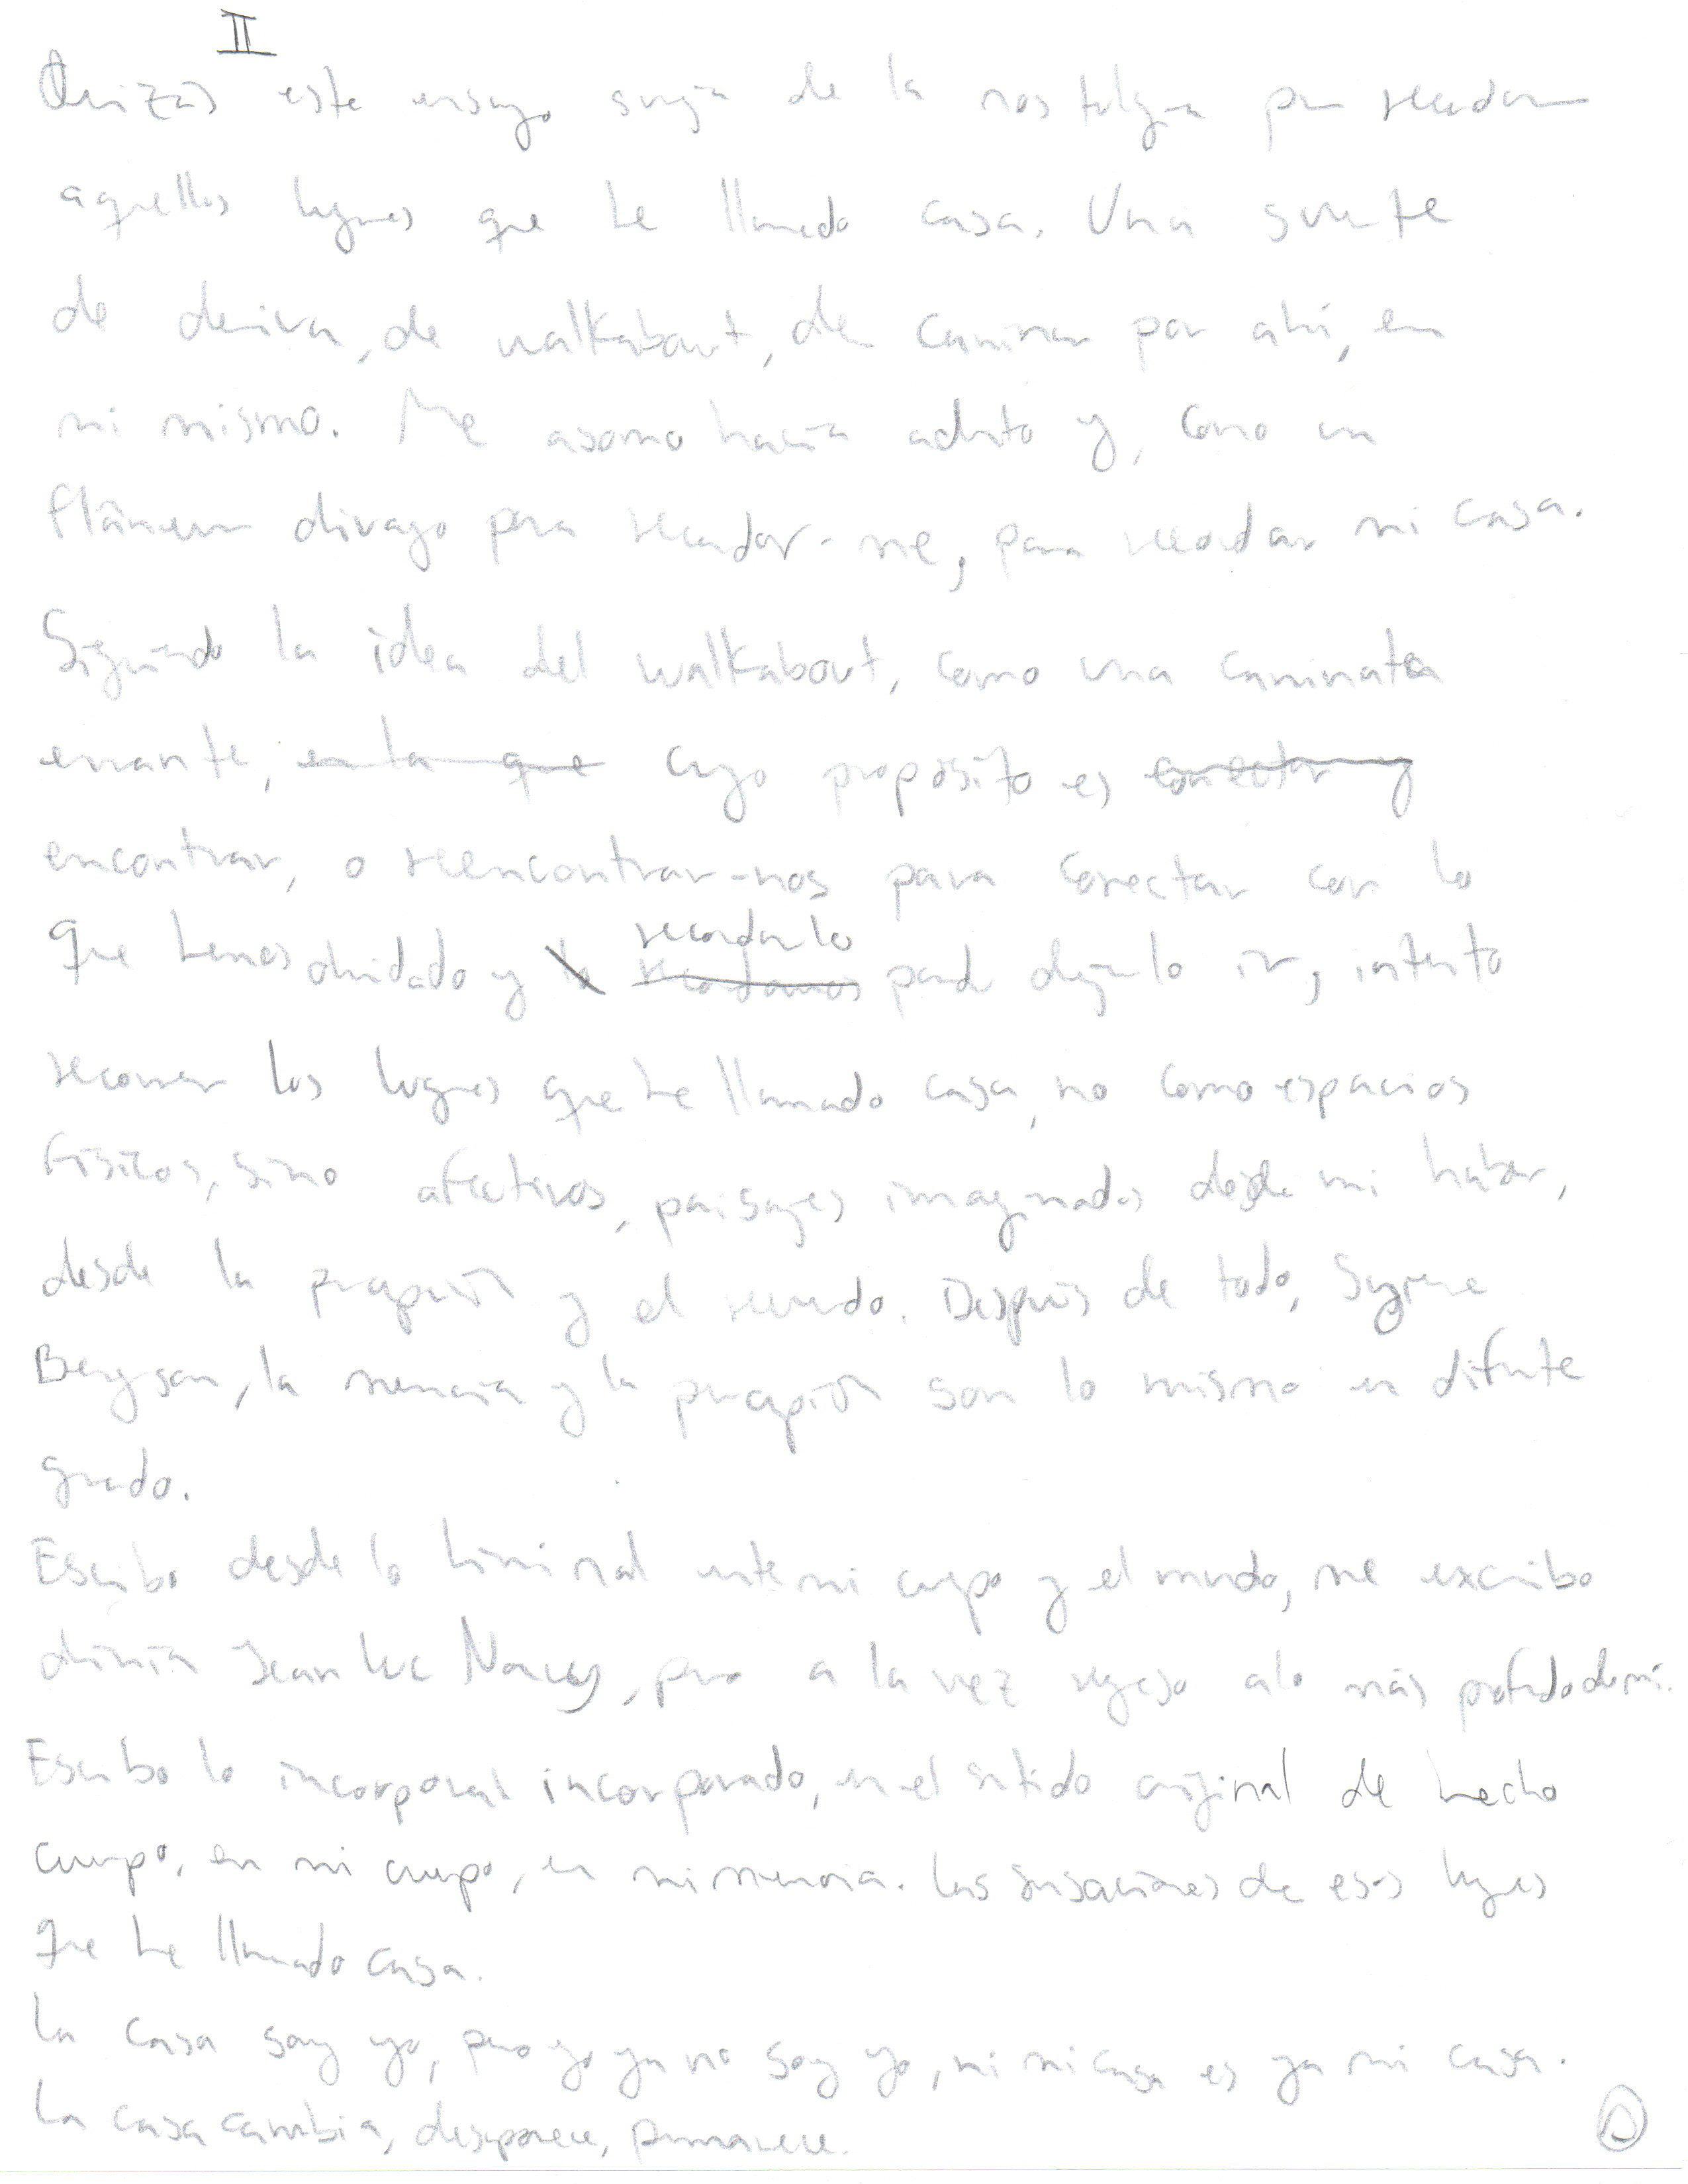 II
Quizás este ensayo surja de la nostalgia por recordar
aquellos lugares que he llamado casa. Una suerte
de deriva, de walkabout, de caminar por ahí, en
mi mismo. Me asomo hacia adentro y, como un
flâneur divago para recordar-me, para recordar mi casa.
Siguiendo la idea del walkabout, como una caminata
errante, en la que cuyo propósito es conectar y
encontrar, o reencontrar-nos para conectar con lo
que hemos olvidado y lo recordarlo para dejarlo ir, intento
recorrer los lugares que he llamado casa, no como espacios
físicos, sino afectivos, paisajes imaginados desde mi haber,
desde la percepción y el recuerdo. Después de todo, sugiere
Bergson, la memoria y la percepción son lo mismo en diferente
grado.
Escribo desde lo liminal entre mi cuerpo y el mundo, me excribo
diría Jean Luc Nancy, pero a la vez regreso a lo más profundo de mí.
Escribo lo incorporal incorporado, en el sentido original de hecho
cuerpo, en mi cuerpo, en mi memoria. Las sensaciones de esos lugares
que he llamado casa.
La casa soy yo, pero yo ya no soy yo, ni mi casa es ya mi casa.
La casa cambia, desaparece, permanece.